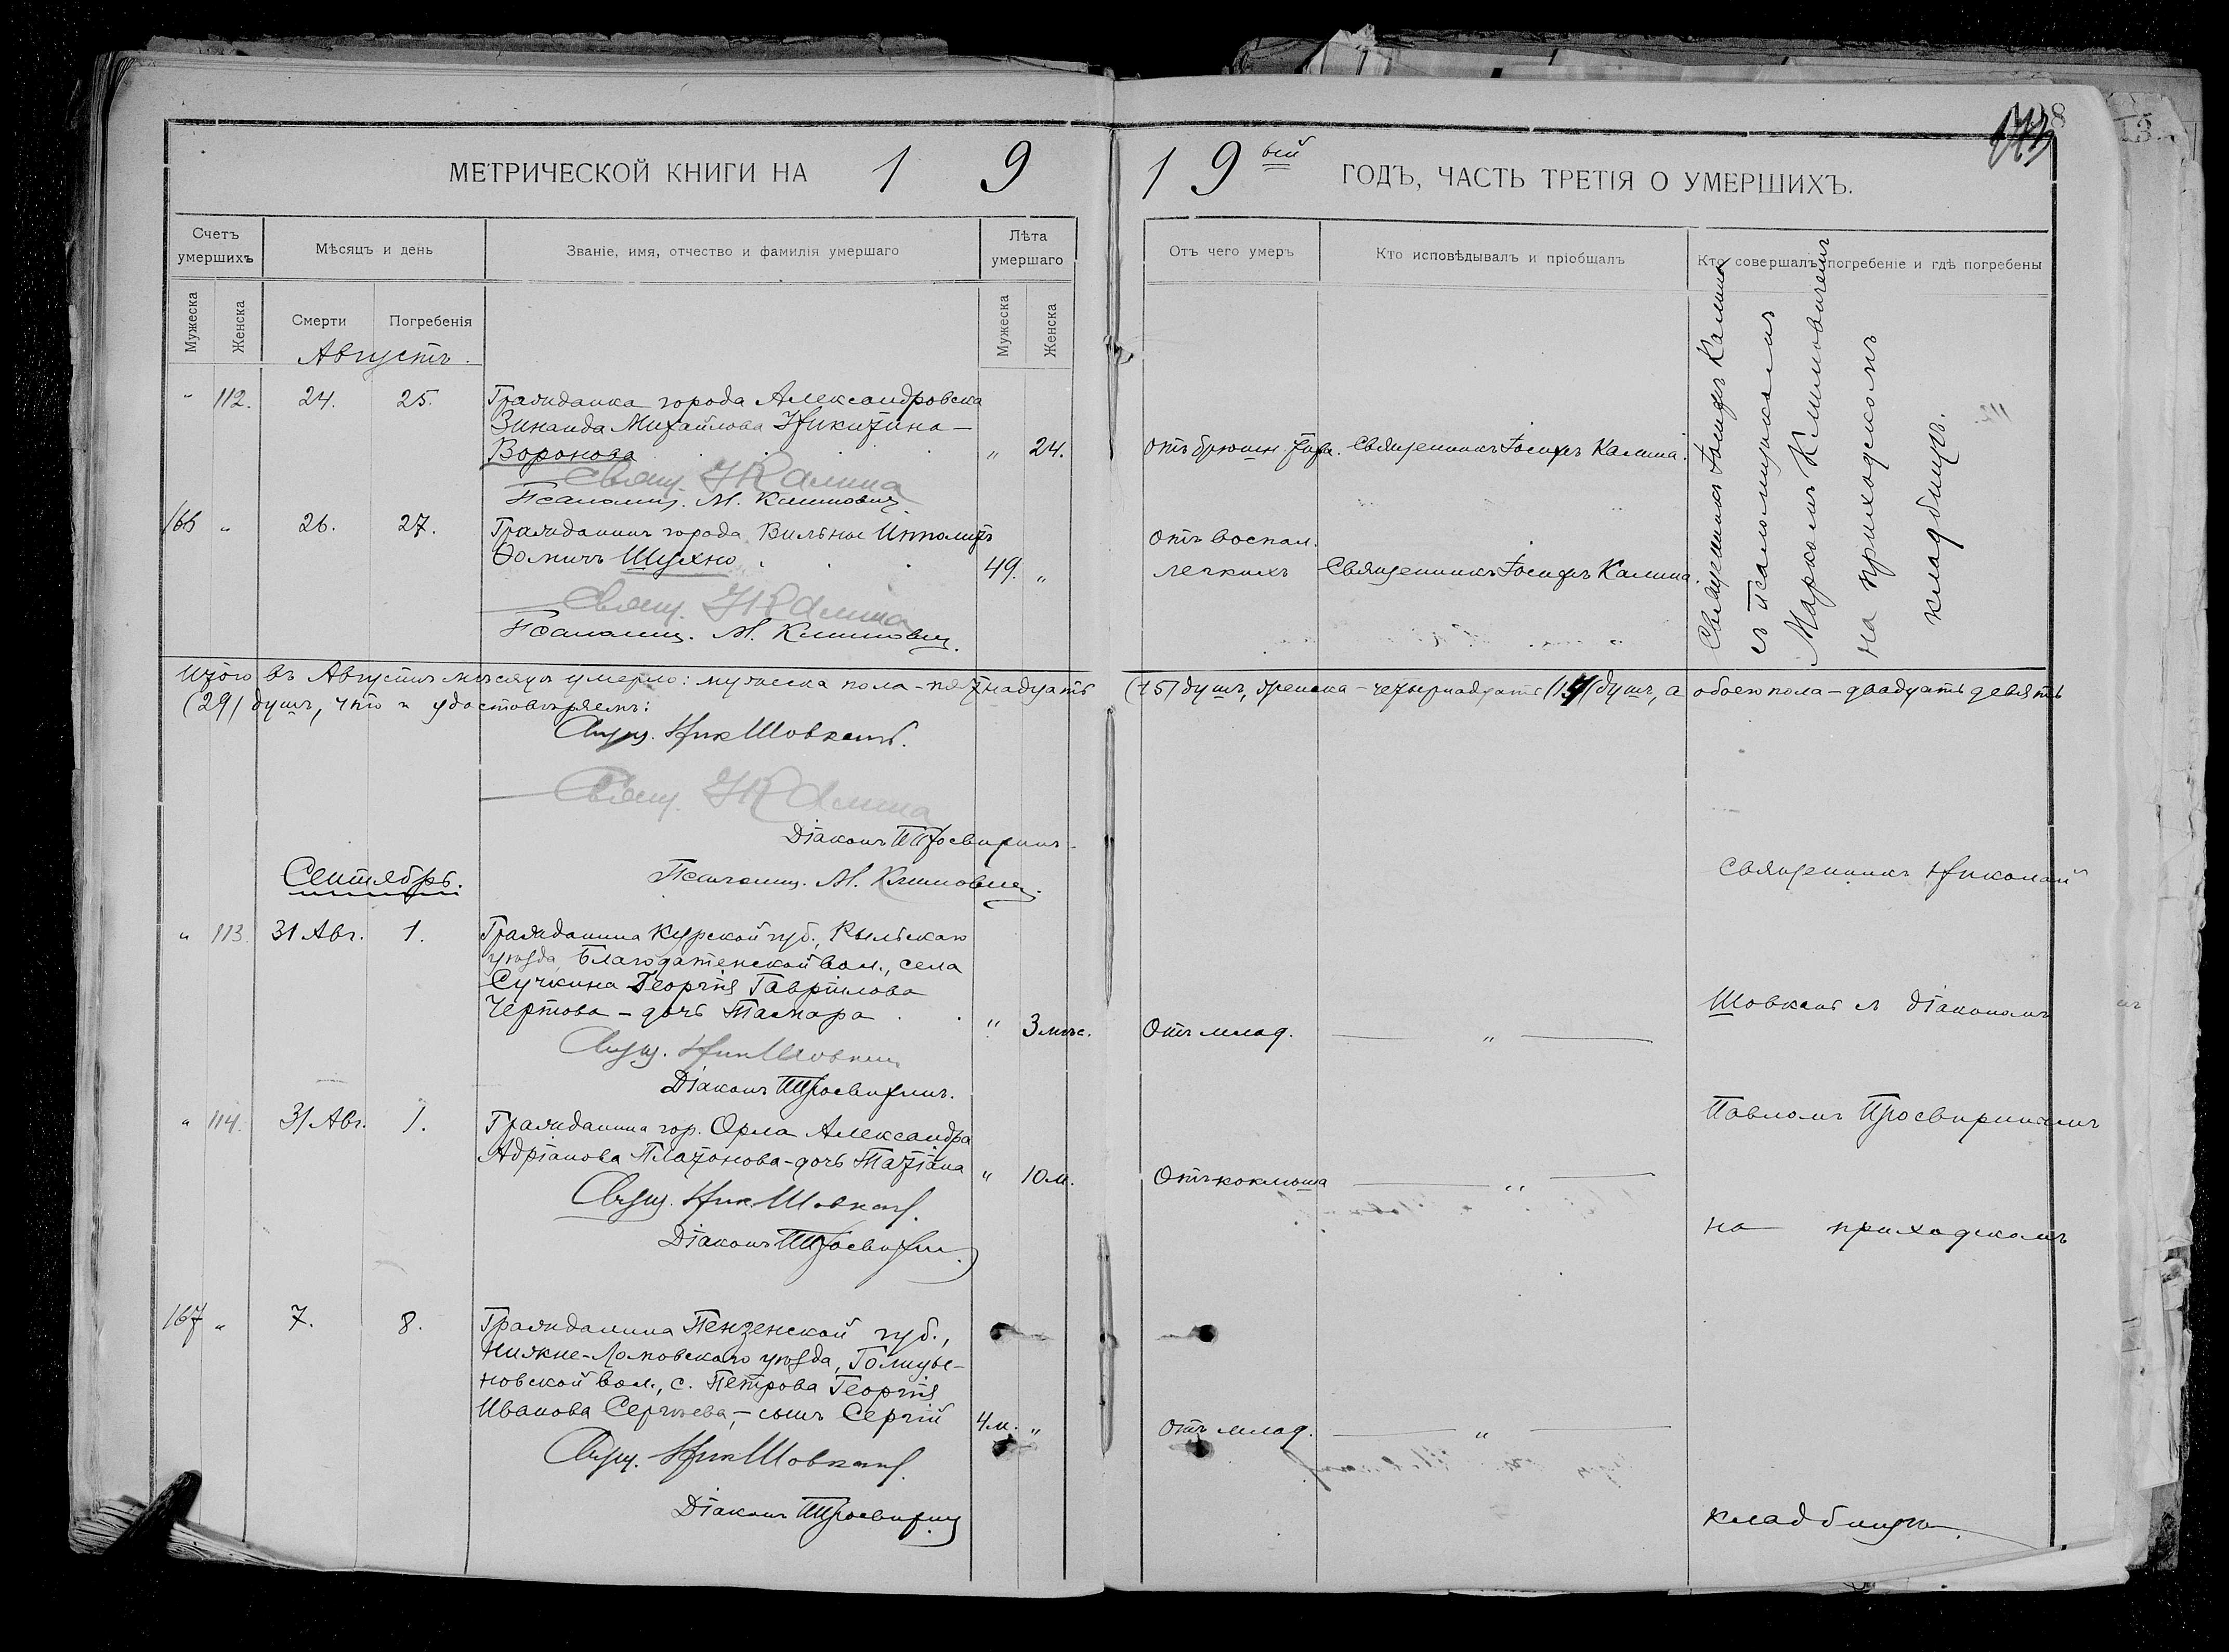 МЕТРИЧЕСКОЙ КНИГИ НА 1 9
Счетъ умершихъ
Мѣсяцъ и день
Званіе, имя, отчество и фамилія умершаго
Лѣта умершаго
Мужеска
Женска
Смерти
Погребенія
Мужеска
Женска
Августъ.
" 112. 24. 25. Гражданка города Александровска
Зинаида Михайлова Никитина-
Воронова " 24.
Свящ. І Калина
Псаломщ. М. Климович
166 " 26. 27. Гражданинъ города Вильны Ипполитъ
Фомичъ Шухно 49. "
Свящ. І Калина
Псаломщ. М. Климович.
Итого въ Августѣ мѣсяцѣ умерло: мужеска пола - пятнадцать
(29) душъ, что и удостовѣряемъ:
Свящ. Ник Шовкопл.
Свящ. І Калина
Діаконъ П Просвиринъ
Псаломщ. М. Климович.
Сентябрь.
" 113. 31 Авг. 1. Гражданина Курской губ., Рыльскаго
уѣзда, Благодатенской вол., села
Сучкина Георгія Гавріилова
Чертова - дочь Тамара " 3 мѣс.
Свящ. Ник Шовкоп
Діаконъ П Просвиринъ.
" 114. 31 Авг. 1. Гражданина гор. Орла Александра
Адріанова Платонова - дочь Татіана " 10 м.
Свящ. Ник Шовкопл.
Діаконъ П Просвирин
167 " 7. 8. Гражданина Пензенской губ.,
Нижне-Ломовскаго уѣзда, Голицы-
новской вол., с. Петрова Георгія
Иванова Сергѣева, - сынъ Сергій 4 м. "
Свящ. Ник Шовкопл.
Діаконъ П Просвирин
1 9 ый ГОДЪ, ЧАСТЬ ТРЕТІЯ О УМЕРШИХЪ.
Отъ чего умеръ
Кто исповѣдывалъ и пріобщалъ
Кто совершалъ погребеніе и гдѣ погребены
отъ брюшн. тифа. Священникъ Іосифъ Калина.
отъ воспал.
легкихъ Священникъ Іосифъ Калина.
Священникъ Іосифъ Калина
съ псаломщикомъ
Маркомъ Климовичемъ
на приходскомъ
кладбищѣ.
(15) душъ, женска - четырнадцать (14) душъ, а обоего пола - двадцать девять
Священникъ Николай
Шовкопл съ діакономъ
Отъ млад. "
Павломъ Просвиринымъ
Отъ коклюша "
на приходскомъ
отъ млад. "
кладбищѣ.